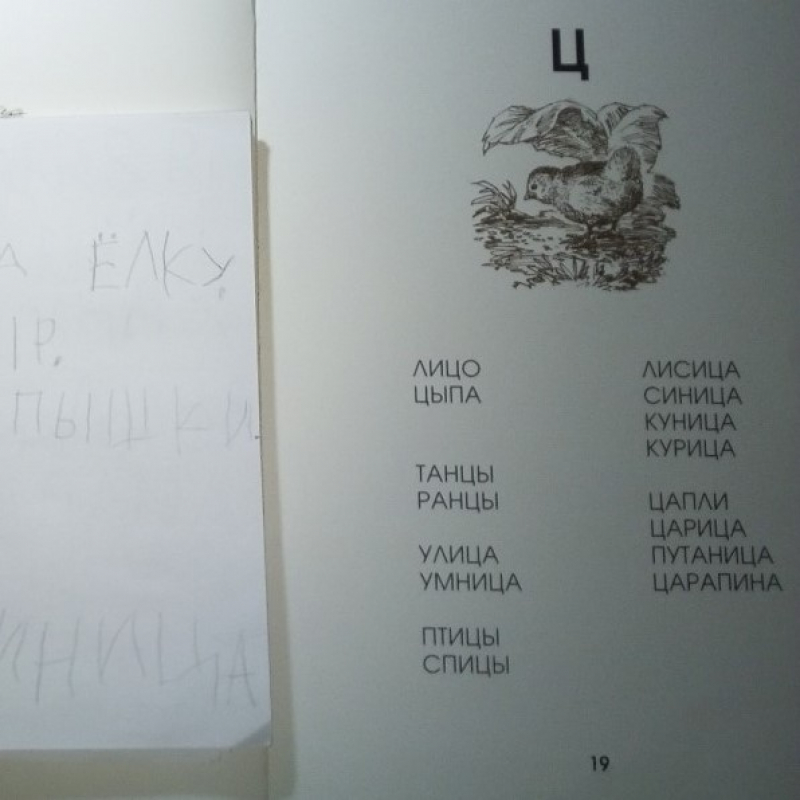 ЁЛКУ.
Ц
ЛИЦО
ЦЫПА
ТАНЦЫ
РАНЦЫ
УЛИЦА
УМНИЦА
ПТИЦЫ
СПИЦЫ
ЛИСИЦА
СИНИЦА
КУНИЦА
КУРИЦА
ЦАПЛИ
ЦАРИЦА
ПУТАНИЦА
ЦАРАПИНА
19